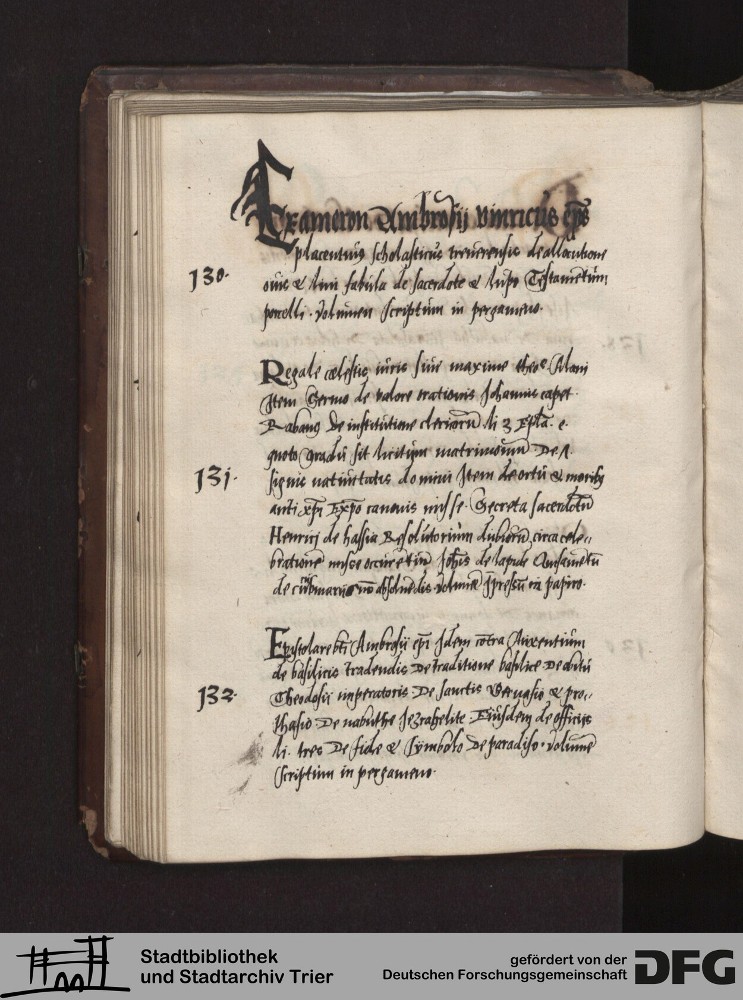 Exameron Ambrosij vinricus eps
placentius scholasticus treuerensis de allocutione
130. ouis & lini fabula de sacerdote & lupo Testamentum
porcelli. Volumen scriptum in pergameno.
Regale celestis iuris siue maxime theoᵉ. Alani
Item Sermo de valore orationis Johannis
Rabanꝰ De institutione clericoru li 3 Epla. e.
quoto gradu sit licitum matrimoniu De
131. signis natiuitatis domini Item de ortu & moribꝰ
anti xpi Expo canonis misse. Secreta sacerdotu
Henrici de hassia Resolutorium dubioru, circa cele=
bratione misse occurentiu Johis de lapide
de no absoluedis. volume Jpressu in papiro.
Epistolare bti Ambrosii epi Idem contra Auxentium
de basilicis tradendis De traditione basilice De obitu
132. Theodosii imperatoris De sanctis Geruasio & pro=
thasio De nabuthe Jezrahelite Eiusdem de officijs
li. tres De fide & symbolo De paradiso. Volume
scriptum in pergameno.
Stadtbibliothek
und Stadtarchiv Trier
gefördert von der
Deutschen Forschungsgemeinschaft
DFG